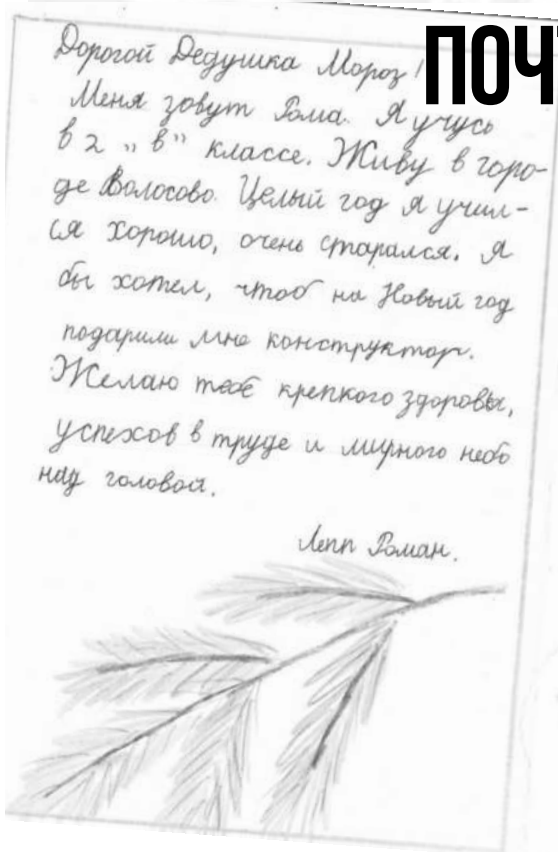 ПОЧ
Дорогой Дедушка Мороз!
Меня зовут Рома. Я учусь
в 2 „в" классе. Живу в горо-
де Волосово. Целый год я учил-
ся хорошо, очень старался. Я
бы хотел, чтоб на Новый год
подарили мне конструктор.
Желаю тебе крепкого здоровья,
успехов в труде и мирного небо
над головой.
Лепп Роман.